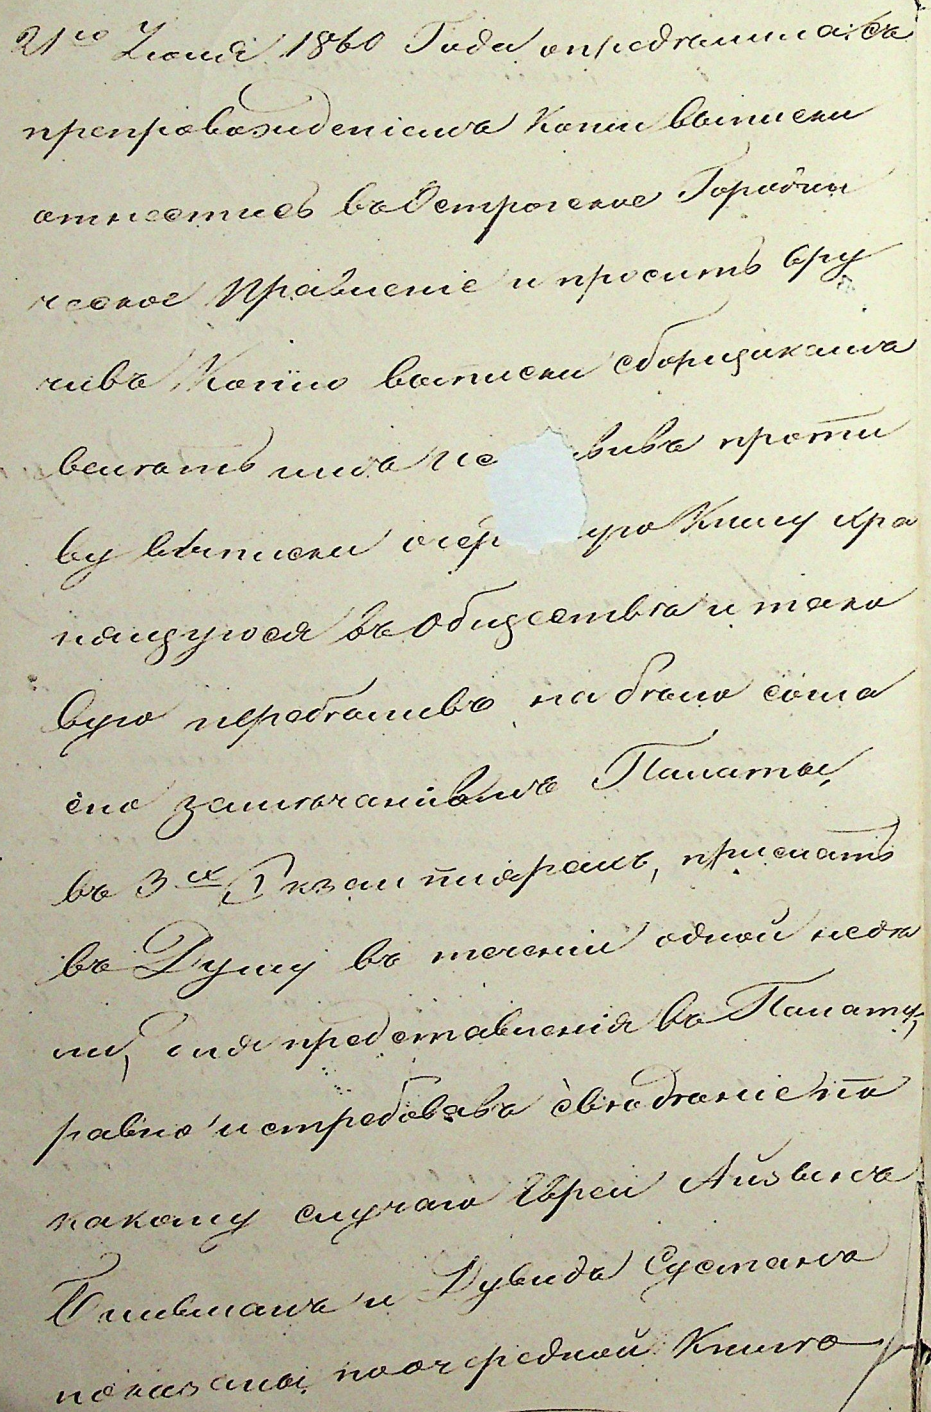 21го Іюня 1860 Года определила: съ
препровожденіемъ Копіи выписки
отнестись въ Острогское Городни
ческое Правленіе и просить вру
чивъ Копію выписки сборщикамъ
велѣть имъ
ву выписки Книгу хра
нящуюся въ Обществѣ и тако
вую перебѣливъ на бѣло согла
сно замѣчаніямъ Палаты,
въ 3хъ Экземплярахъ, прислать
въ Думу въ теченіи одной недѣ
ли, для представленія въ Палату,
равно истребовавъ свѣдѣніе по
какому случаю Евреи Айзыкъ
и Дувидъ
показаны по очередной Книгѣ